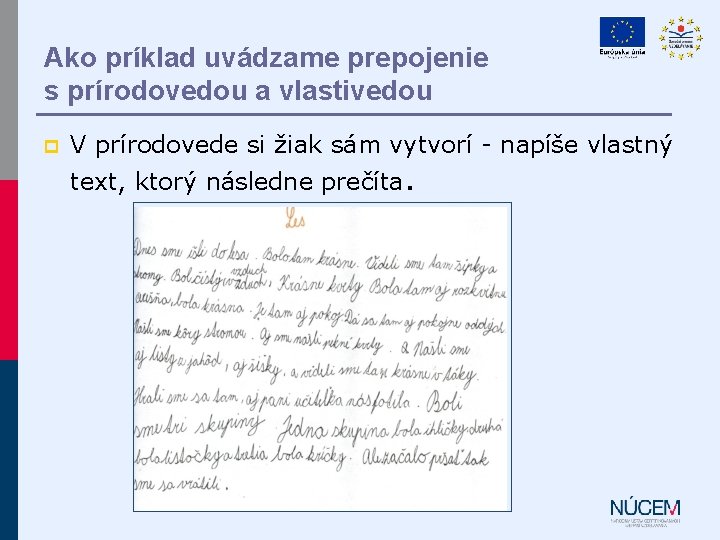 Ako príklad uvádzame prepojenie
s prírodovedou a vlastivedou
Európska únia
V prírodovede si žiak sám vytvorí - napíše vlastný
text, ktorý následne prečíta.
Les
Dnes sme išli do lesa. Bolo tam krásne. Videli sme tam šípky a
stromy. Bol čistý vzduch, Krásne kvety Bola tam aj rozkvitnu
bola krásna. Je tam aj pokoj Dá sa tam aj pokojne oddých
Našli sme kôry stromou. Aj sme našli pekné kvety. Našli sme
aj listy z jahôd, aj šišky, a videli sme tam krásne vtáky.
Hrali sme sa tam, aj pani učiteľka nás fotila. Boli
sme tri skupiny Jedna skupina bola ihličky druhá
bola listočky a tretia bola kríčky. Ale začalo pršať tak
sme sa vrátili.
NÚCEM